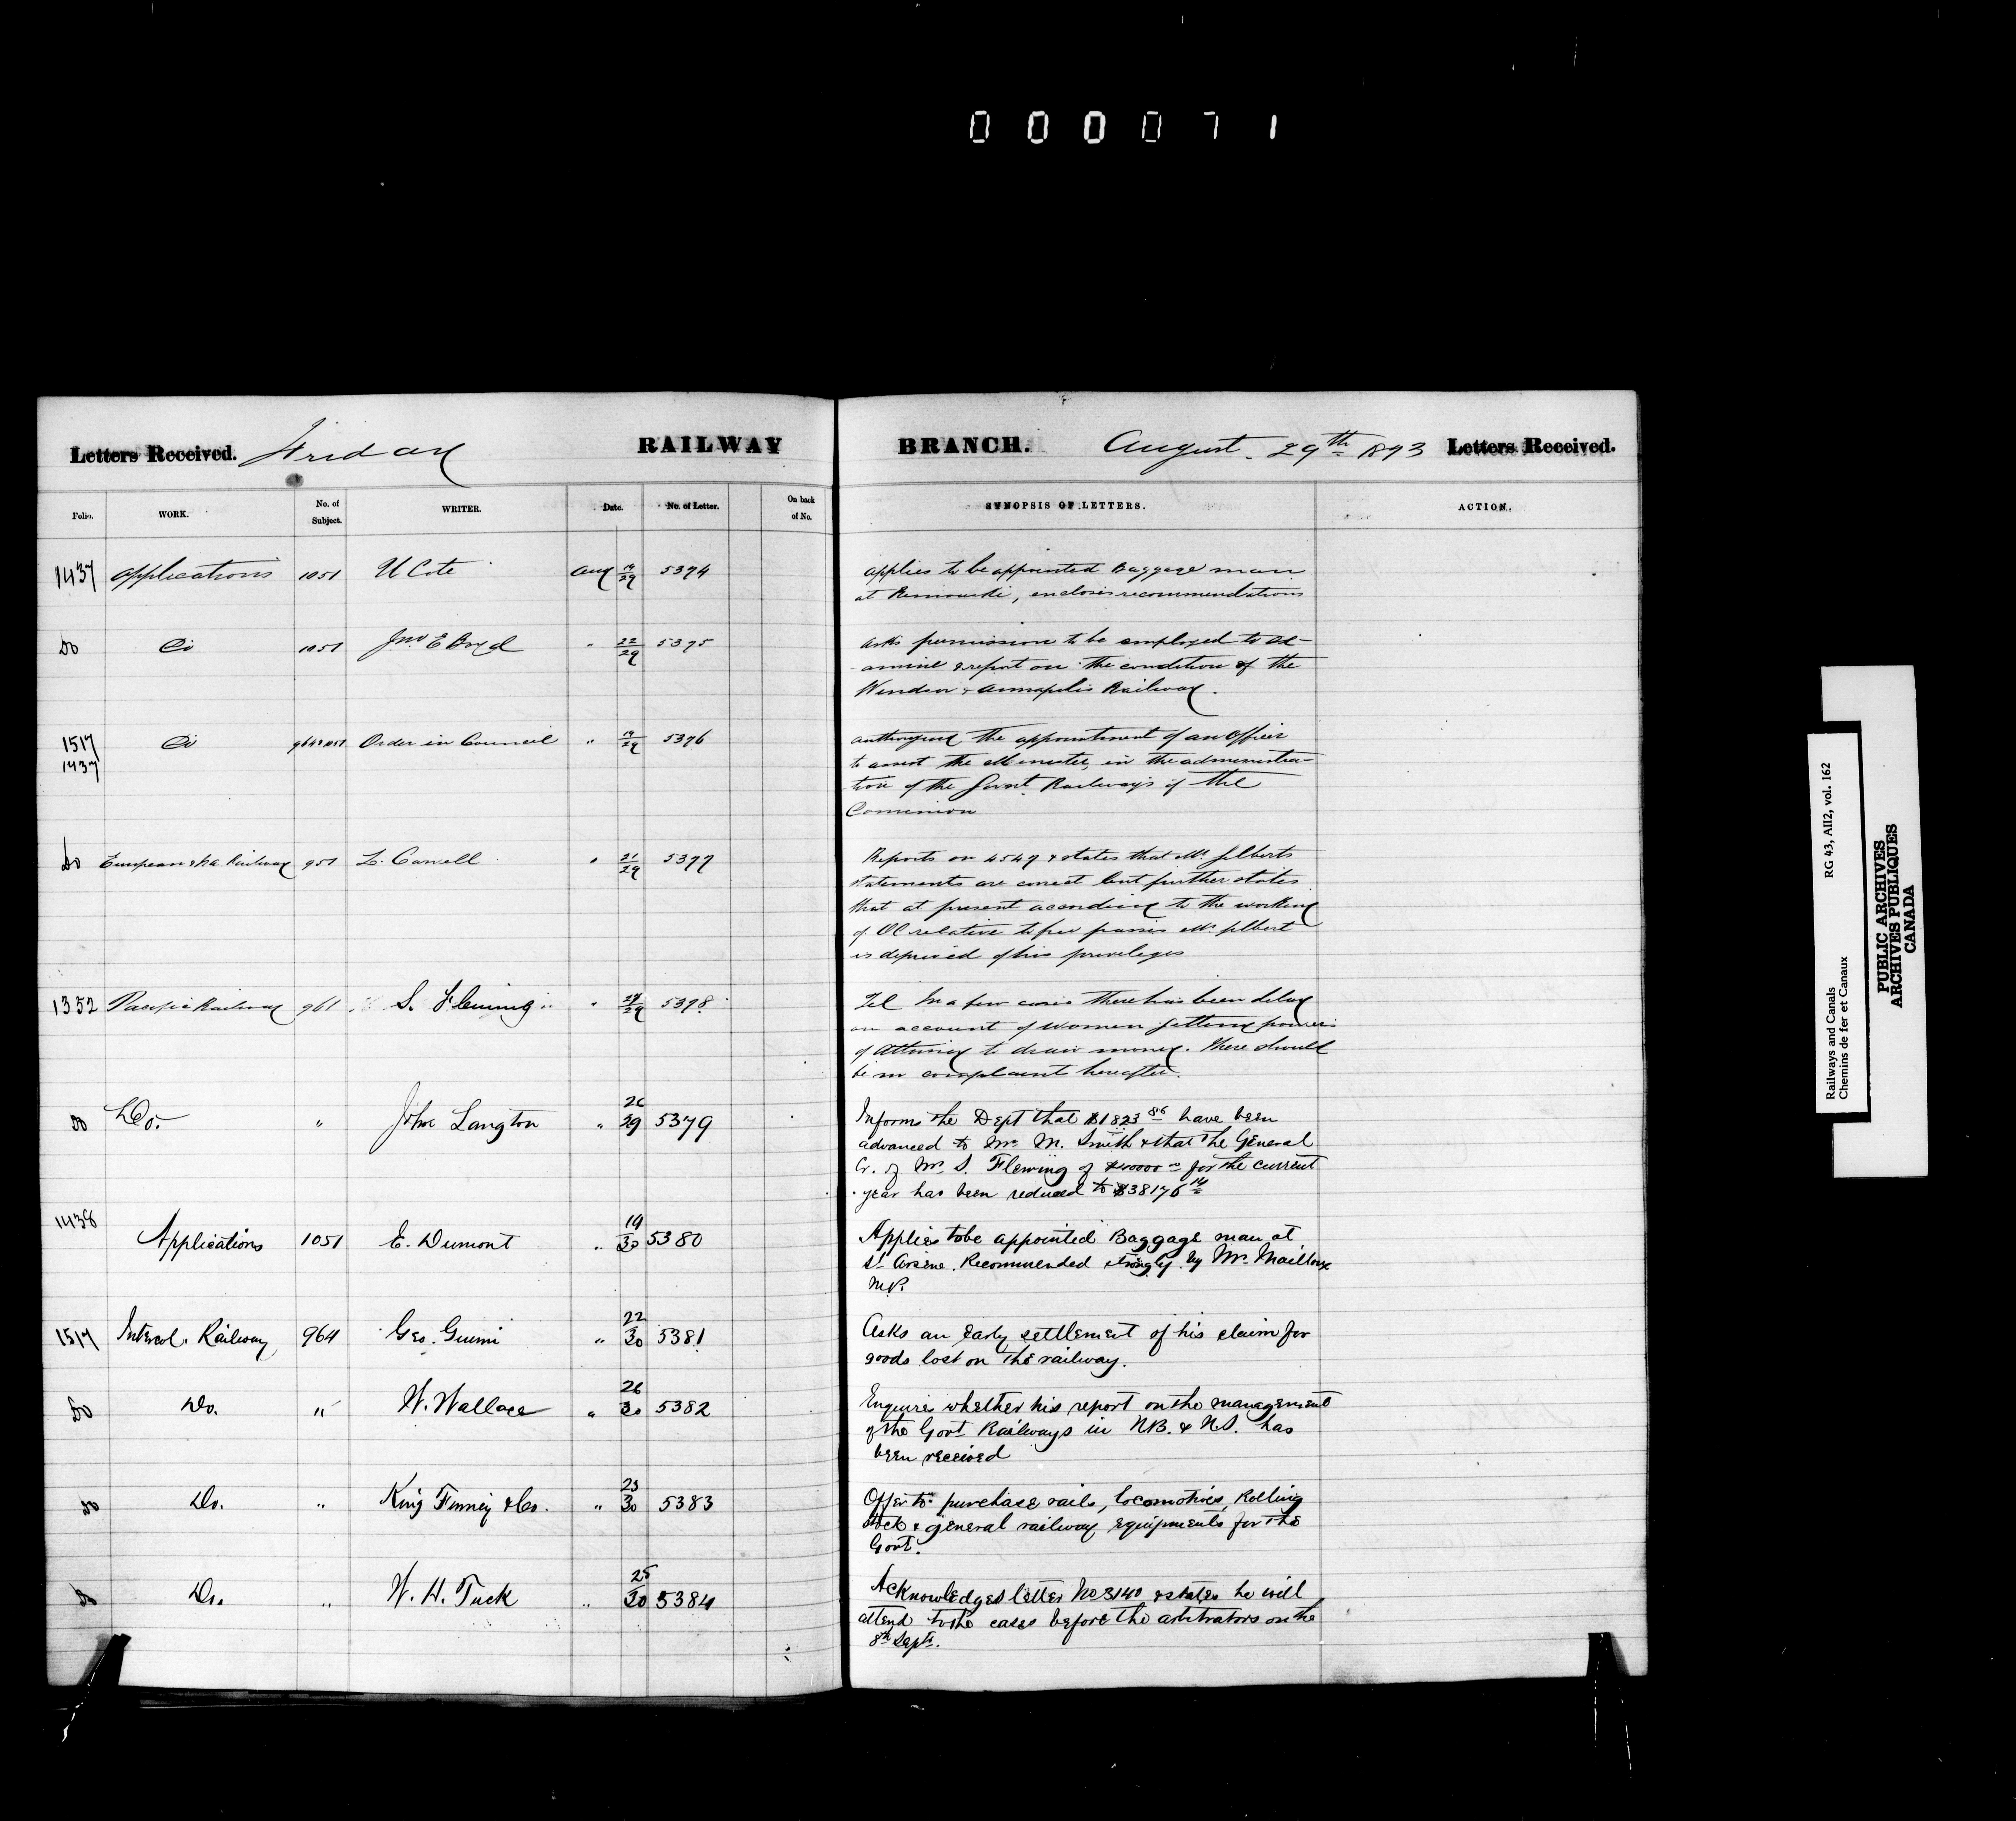 000071
Letters Received. Friday RAILWAY BRANCH. August 29th 1873 Letters Received.
Folio. WORK. No. of Subject. WRITER. Date. No. of Letter. On back of No. SYNOPSIS OF LETTERS. ACTION.
1437 Applications 1051 U Cote Aug 19/29 5374
applies to be appointed Baggage man
at Rimouski, encloses recommendations
Do Do 1051 Jno E Boyd " 22/29 5375
asks permission to be employed to ex-
-amine & report on the condition of the
Windsor & Annapolis Railway.
1517 1437 Do 964 & 1051 Order in Council " 19/29 5376
authorizing the appointment of an Officer
to assist the Minister, in the administra-
tion of the Govnt Railways of the
Dominion
Do European & N.A. Railway 951 L. Carvell " 21/29 5377
Reports on 4547 & states that Mr. Jilberts
statements are correct but further states
that at present according to the working
of OC relative to free passes Mr. Jilbert
is deprived of his privileges
1352 Pacific Railway 961 S. Fleming " 29/29 5378
Tel In a few cases there has been delay
on account of women getting powers
of Attorney to draw money. There should
be no complaint hereafter.
Do Do. " John Langton " 26/29 5379
Informs the Dept that $1823 86 have been
advanced to Mr. M. Smith & that the General
Cr. of Mr. S. Fleming of $40000 00 for the current
year has been reduced to $38176 14
1438 Applications 1051 E. Dumont " 19/30 5380
Applies to be appointed Baggage man at
St. Arsene. Recommended strongly by Mr. Mailloux
M.P.
1517 Intercol. Railway 964 Geo. " 22/30 5381
Asks an early settlement of his claim for
goods lost on the railway.
Do Do. " W. Wallace " 26/30 5382
Enquires whether his report on the management
of the Govt Railways in N.B. & N.S. has
been received
Do Do. " King Finney & Co. " 23/30 5383
Offer to purchase rails, locomotives, Rolling
stock & general railway equipments for the
Govt.
Do Do. " W. H. Tuck " 25/30 5384
Acknowledges letter No 3140 & states he will
attend to the cases before the arbitrators on the
8th Sept.
Railways and Canals RG 43, AII2, vol. 162
Chemins de fer et Canaux
PUBLIC ARCHIVES
ARCHIVES PUBLIQUES
CANADA